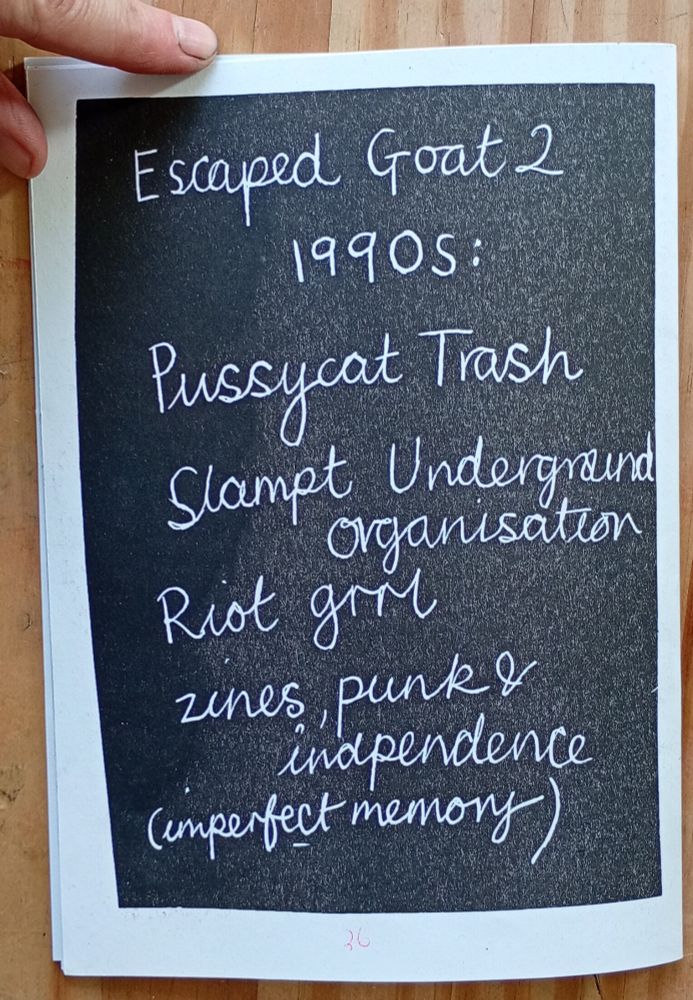 Escaped Goat 2
1990s:
Pussycat Trash
Slampt Underground
organisation
Riot grrl
zines, punk &
indpendence
(imperfect memory)
36